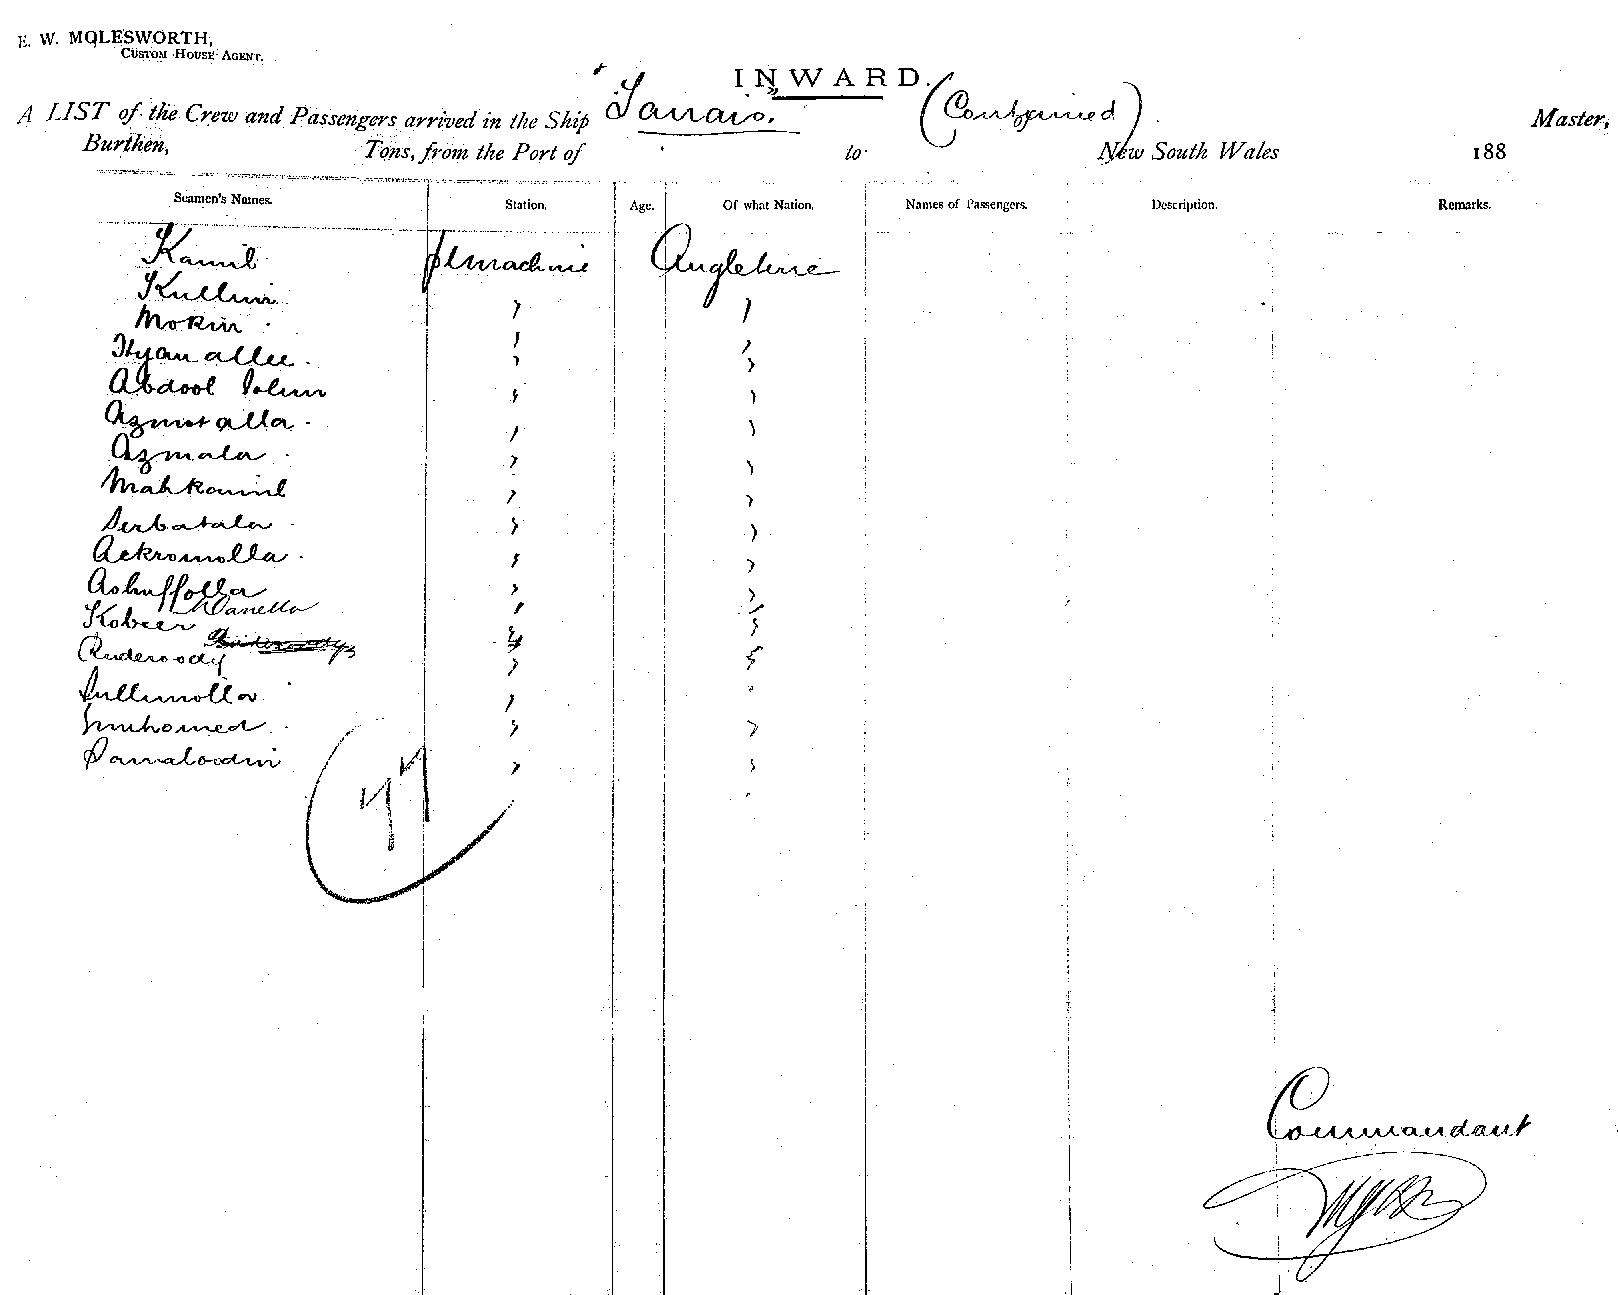 E. W. MOLESWORTH,
CUSTOM HOUSE AGENT.
INWARD.
A LIST of the Crew and Passengers arrived in the Ship Tanais. (Contained) Master,
Burthen, Tons, from the Port of to New South Wales 188
Seamen's Names. Station. Age. Of what Nation. Names of Passengers. Description. Remarks.
Kamil Angleterre
Kullim " "
Mokim " "
Hyan allee " "
Abdool " "
Azmutalla " "
Azmala " "
Mahkamil " "
Serbatala " "
Ackromolla " "
Ashuffolla " "
Wanella
Kobeer " "
Ruderoody " "
Sullimolla " "
" "
Jamaloodin " "
77
Commandant